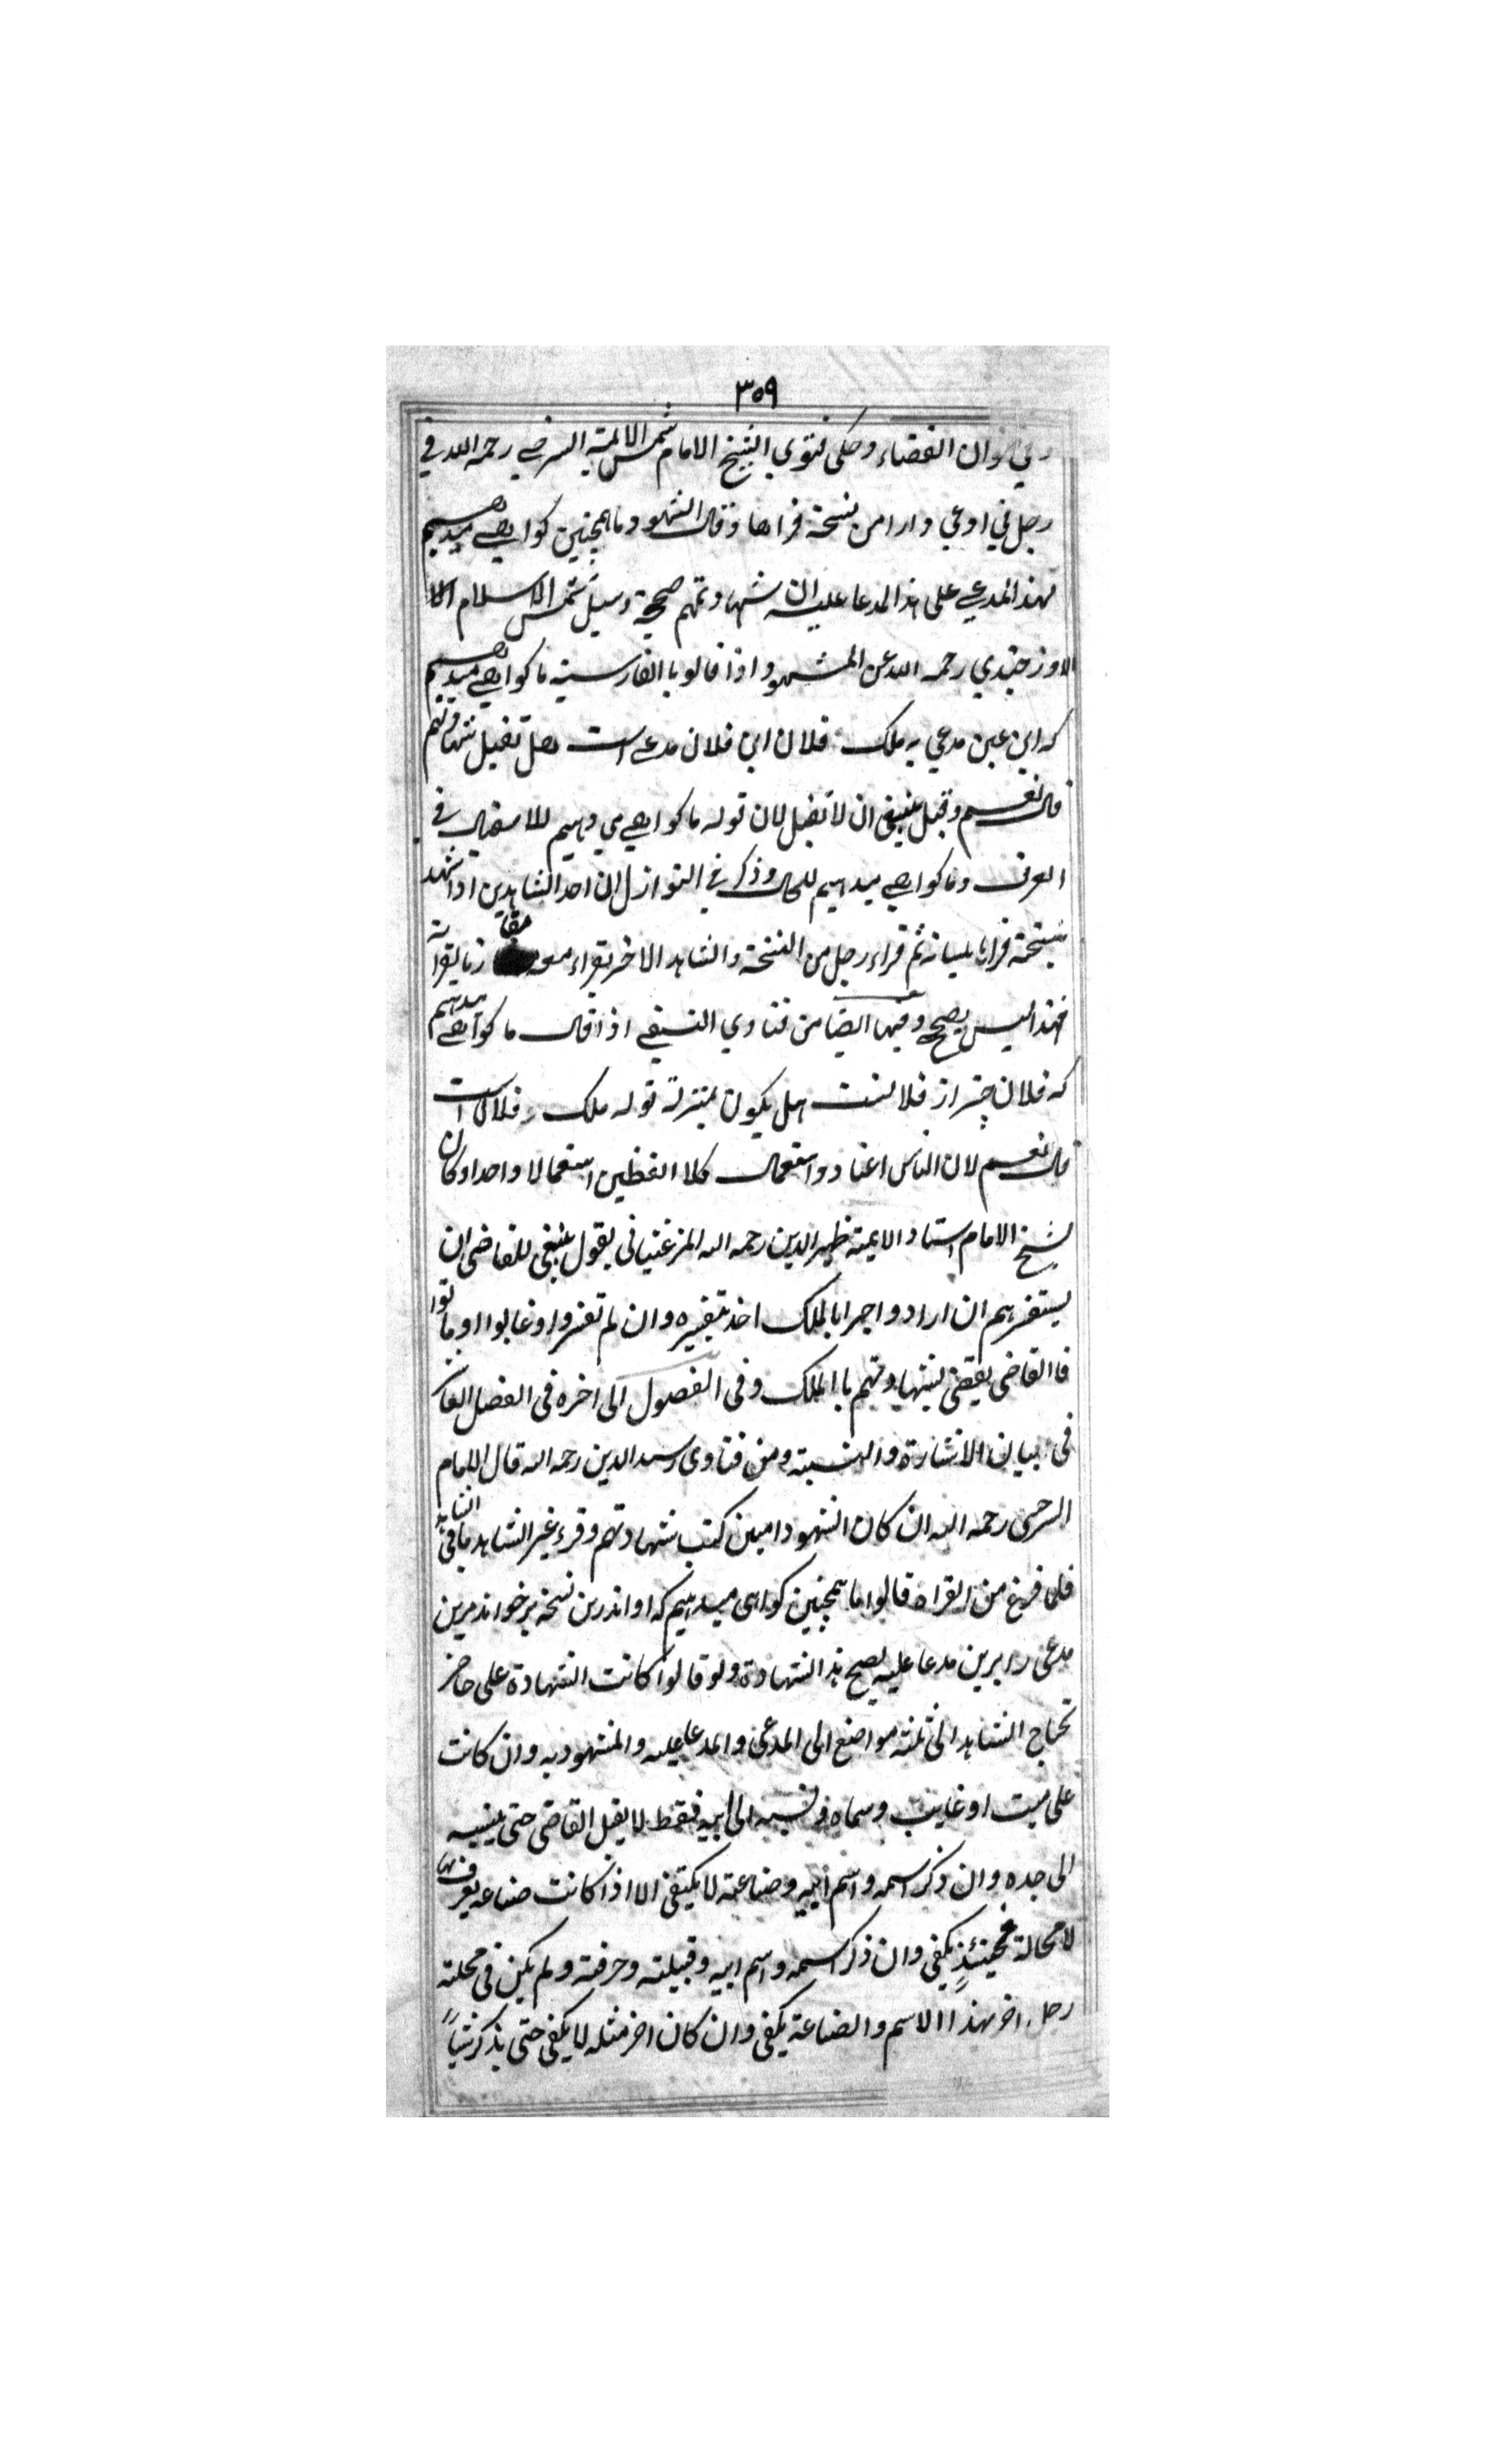 ٣٥٩
وان القضاء وحكى فتوى الشيخ الامام شمس الائمة السرخسي رحمه الله في
رجل ادعي دارا من نسخة قراها وقال الشهود ما همچنين كواهي ميدهيم
لهذا المدعي على هذا المدعا عليه ان شهادتهم صحيحة وسيل شمس الاسلام
الاوزجندي رحمه الله عن الشهود اذا قالو با الفارسية ما كواهي ميدهيم
كه اين عين مدعي به ملك فلان ابن فلان مدعي است هل تقبل شهادتهم
قال نعم وقيل ينبغي ان لا تقبل لان قوله ما كواهي مي دهيم للاستقبال في
العرف وما كواهي ميدهيم للحال وذكر في النوازل ان احد الشاهدين اذا شهد
بنسخة قراها بلسانه ثم قراء رجل من النسخة والشاهد الاخر يقراء معه مقارنا بقراته
فهذا ليس يصح وفيها ايضا من فتاوي النسفي اذا قال ما كواهي ميدهيم
كه فلان چيز از فلانست هل يكون بمنزلة قوله ملك فلان است
قال نعم لان الناس اعتادوا استعمال كلا اللفظين استعمالا واحدا وكان
شيخ الامام استاد الايمة ظهير الدين رحمه الله المرغيناني يقول ينبغي للقاضي ان
يستفسرهم ان ارادو اجرا بالملك اخذ بتفسيره وان لم تفسروا او غابوا او ماتوا
فا القاضي يقضي بشهادتهم با الملك وفي الفصول الى اخره في الفصل
في بيان الاشارة والنسبة ومن فتاوى رسيد الدين رحمه الله قال الامام
السرخسي رحمه الله ان كان الشهود اميين كتب شهادتهم وقرء غير الشاهد
فلما فرغ من القراه قالوا ما همچنين كواهى ميدهيم كه او اندرين نسخه برخواند مرين
مدعى را برين مدعا عليه يصح هذا الشهادة ولو قالوا كانت الشهادة على حاضر
تحتاج الشاهد الى ثلثه مواضع الى المدعى والمدعا عليه والمشهود به وان كانت
على ميت او غايب وسماه ونسبه الى ابيه فقط لا يقبل القاضى حتى ينسبه
الى جده وان ذكر اسمه واسم ابيه وصناعته لا يكتفى الا اذا كانت صناعه يعرف بها
لا محالة فحينئذ يكفى وان ذكر اسمه واسم ابيه وقبيلته وحرفته ولم يكن فى محلته
رجل اخر بهذا الاسم والصناعة يكفى وان كان اخر مثله لا يكفى حتى يذكر شيا